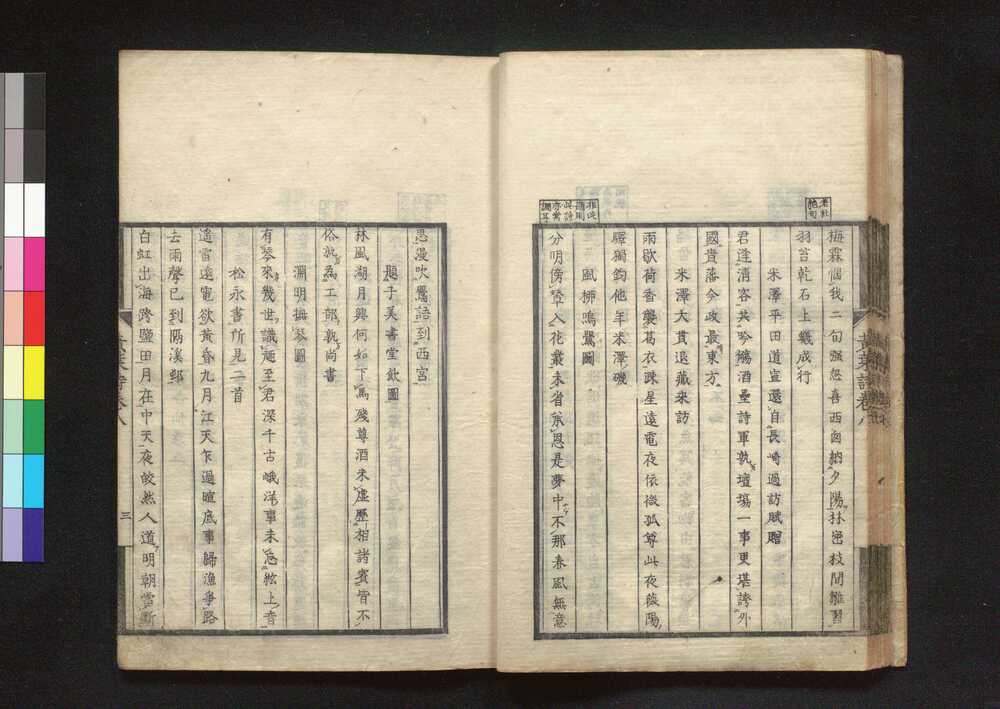 老杜
絶句
梅霖悩我二旬強忽喜西窗納夕陽林密枝間雛習
羽苔乾石上蟻成行
米澤平田道宣還自長崎過訪賦贈
君逢清客共吟觴酒壘詩軍孰壇場一事更堪誇外
國貴藩今政最東方
米澤大貫退藏来訪
雨歇荷香襲葛衣疎星遠電夜依微孤尊此夜薇陽
驛獨釣他年米澤磯
風栁鳴鶯圖
分明傍輦入花叢未省承恩是夢中不那春風無意
思漫吹鶯語到西宮
題子美書堂飲圖
林風湖月興何如下馬殘尊酒未虛歷相諸賓皆不
俗就為工部孰尚書
淵明撫琴圖
有琴來幾世識麁至君深千古峨洋事未忘絃上音
松永書所見二首
遙雷遠電欲黃昏九月江天乍過暄底事歸漁爭路
去雨聲已到隔溪邨
白虹出海跨鹽田月在中天夜皎然人道明朝當斷
黃葉詩卷八
三